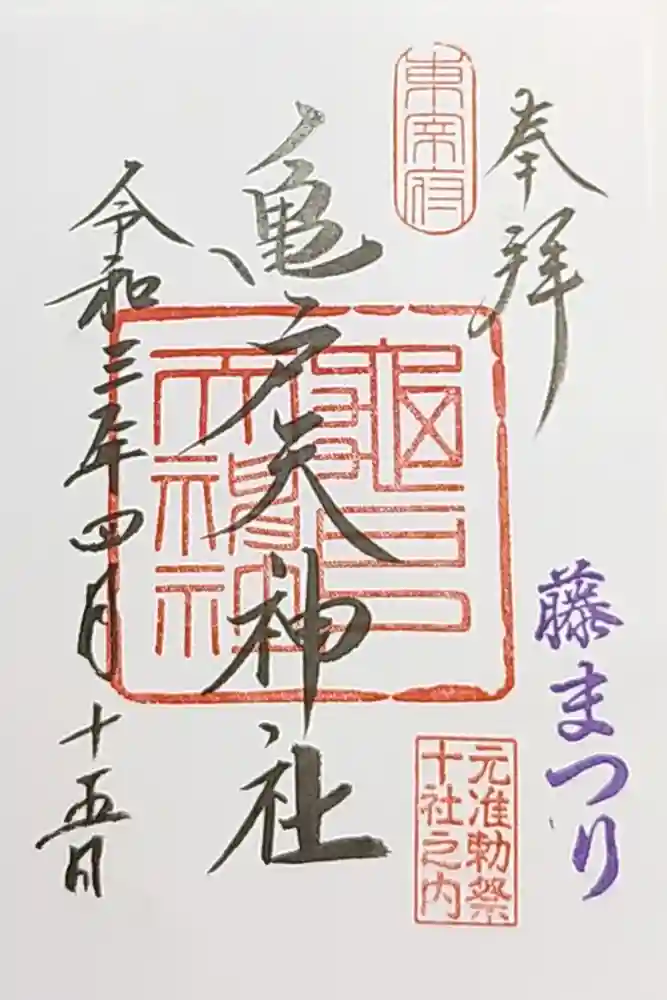 奉拝
東宰府
藤まつり
元准勅祭
十社之内
亀戸天神社
令和三年四月十五日